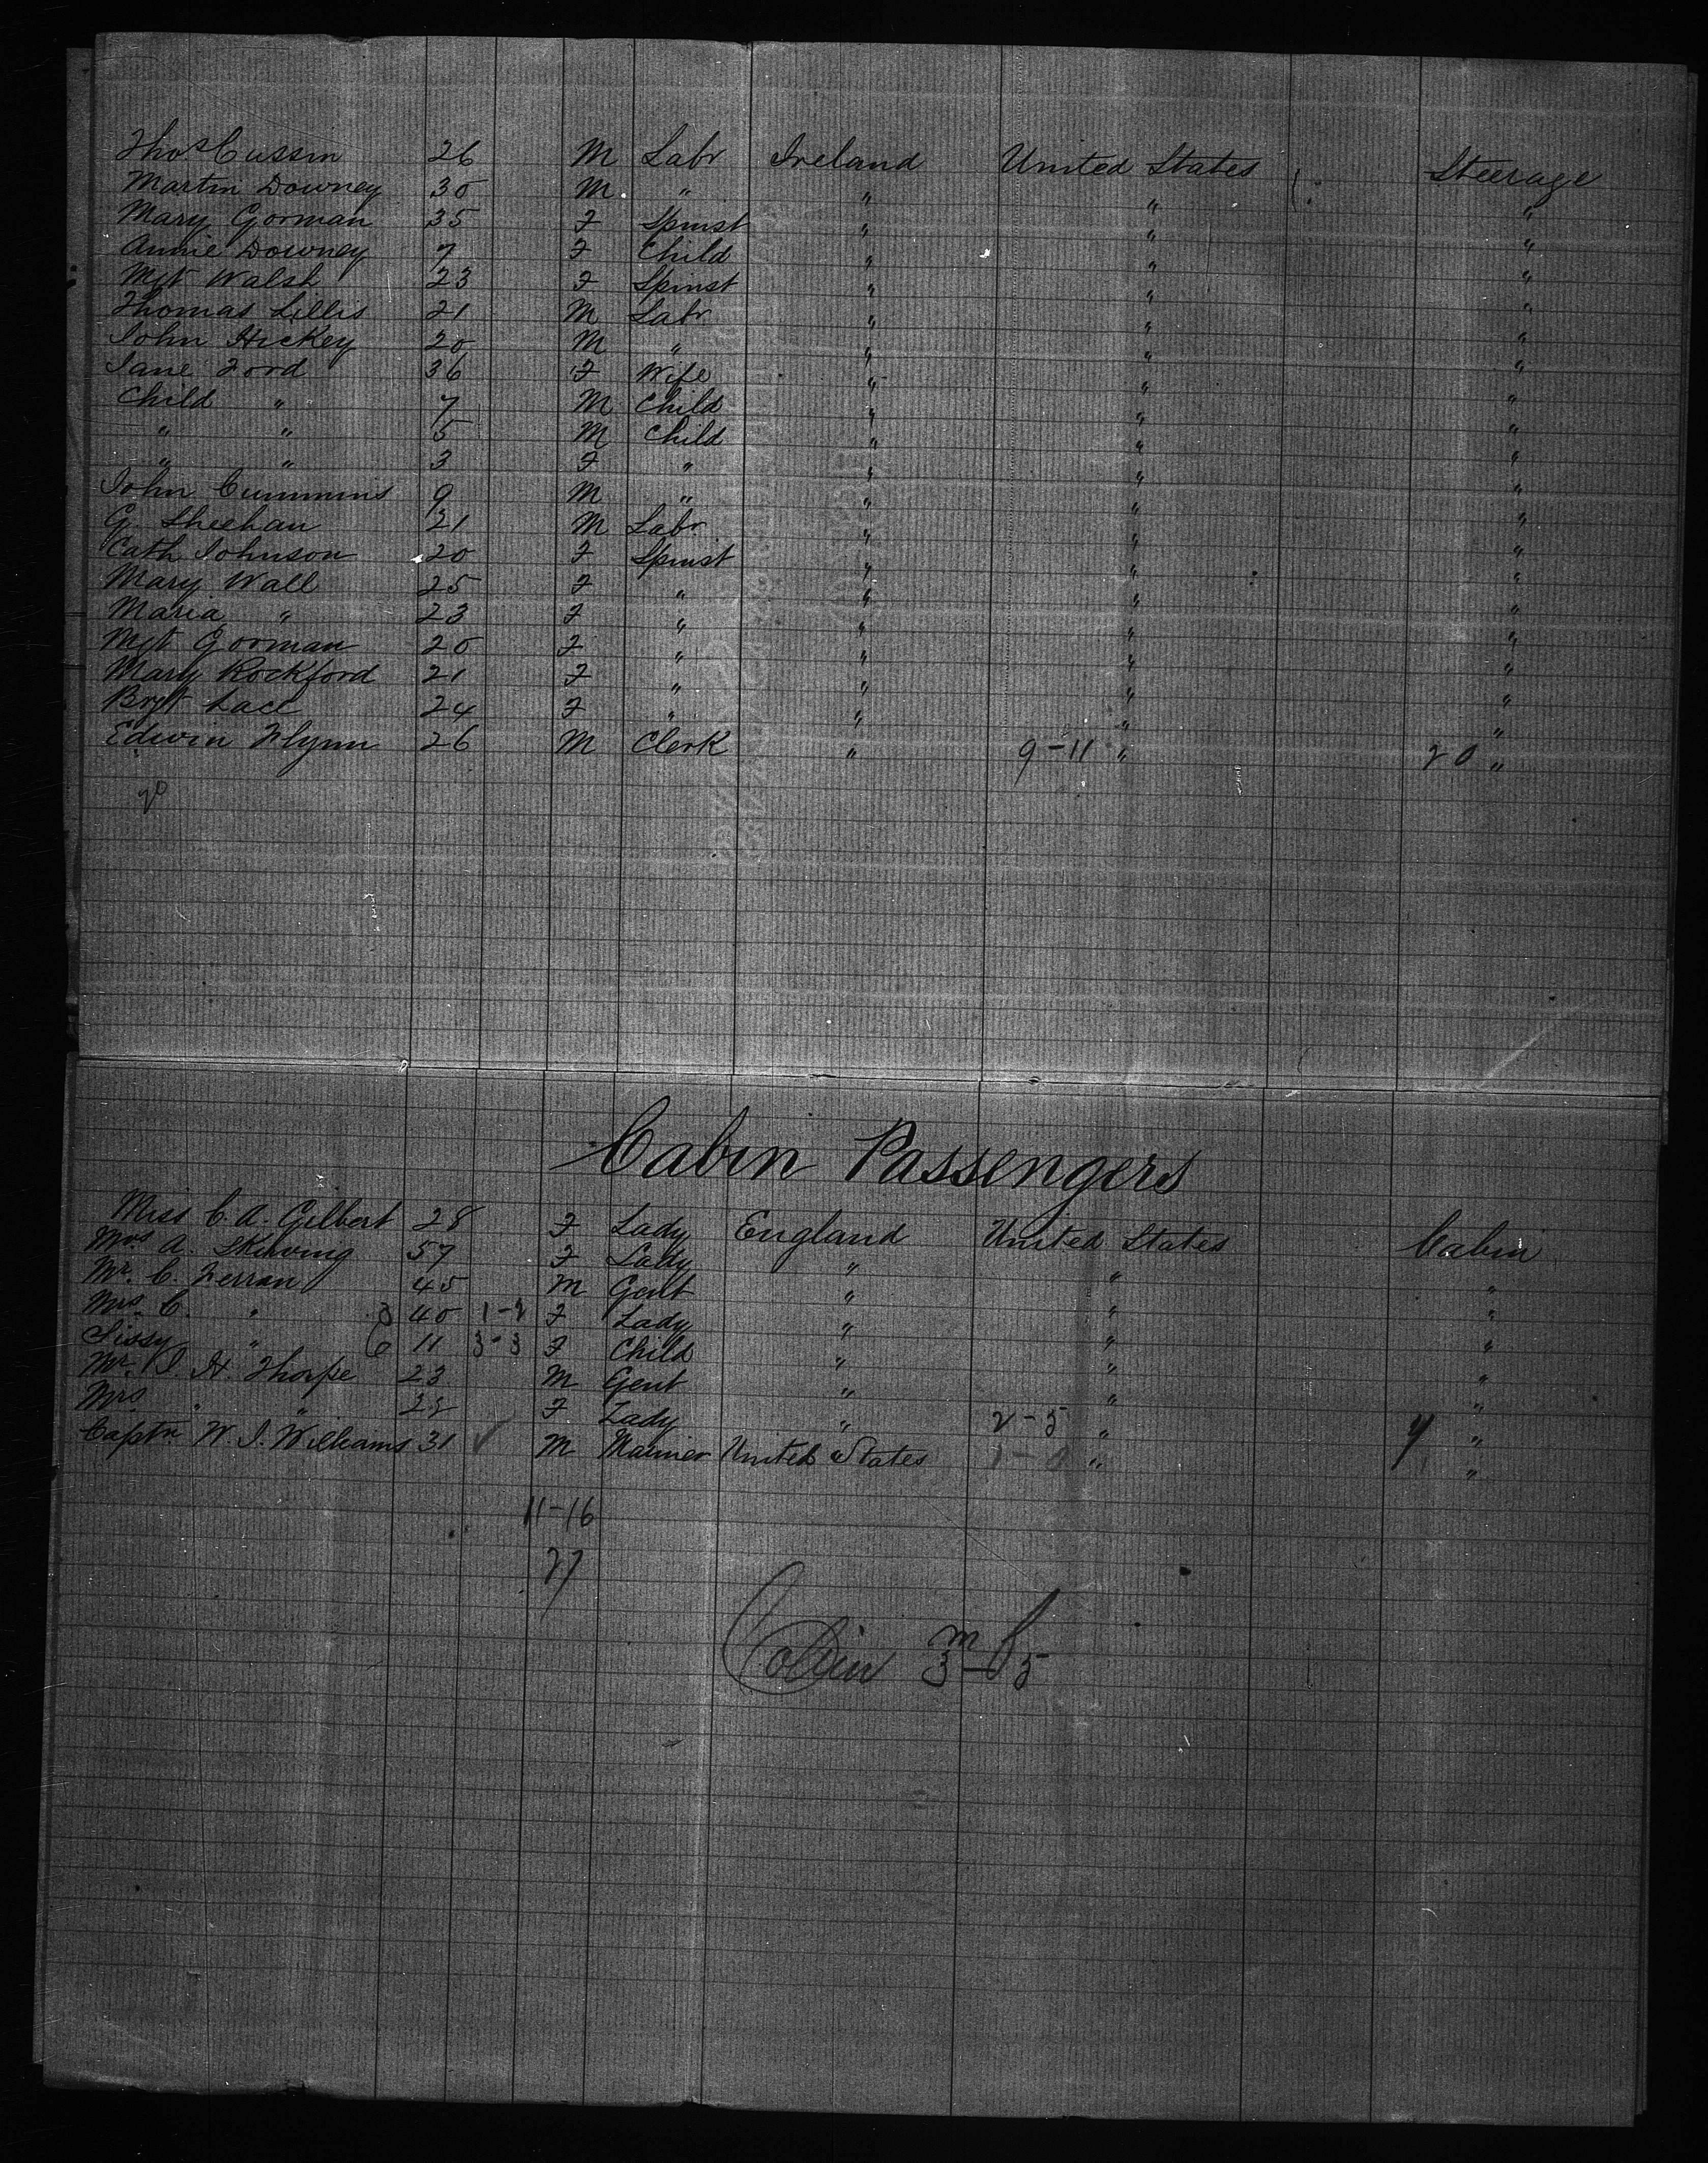 Thos Cussin 26 M Labr Ireland United States Steerage
Martin Downey 30 M " " " "
Mary Gorman 35 F Spinst " " "
Annie Downey 7 F Child " " "
Mgt Walsh 23 F Spinst " " "
Thomas Lillis 21 M Labr " " "
John Hickey 20 M " " " "
Jane Ford 36 F Wife " " "
Child " 7 M Child " " "
" " 5 M Child " " "
" " 3 F " " " "
John Cummins 9 M " " " "
G. Sheehan 21 M Labr " " "
Cath Johnson 20 F Spinst " " "
Mary Wall 25 F " " " "
Maria " 23 F " " " "
Mgt Gorman 20 F " " " "
Mary Rockford 21 F " " " "
Brgt Lacc 24 F " " " "
Edwin Flynn 26 M Clerk " 9-11 " 20 "
20
Cabin Passengers
Miss C. A. Gilbert 28 F Lady England United States Cabin
Mrs A. Skirving 57 F Lady " " "
Mr. C. Ferran 45 M Gent " " "
Mrs. C. " 40 1-2 F Lady " " "
Sissy " 11 3-3 F Child " " "
Mr. J. H. Thorpe 23 M Gent " " "
Mrs " " 22 F Lady " 2-5 " 7 "
Captn W. J. Williams 31 M Mariner United States 1-0 " "
11-16
27
Cabin M 3 - F 5